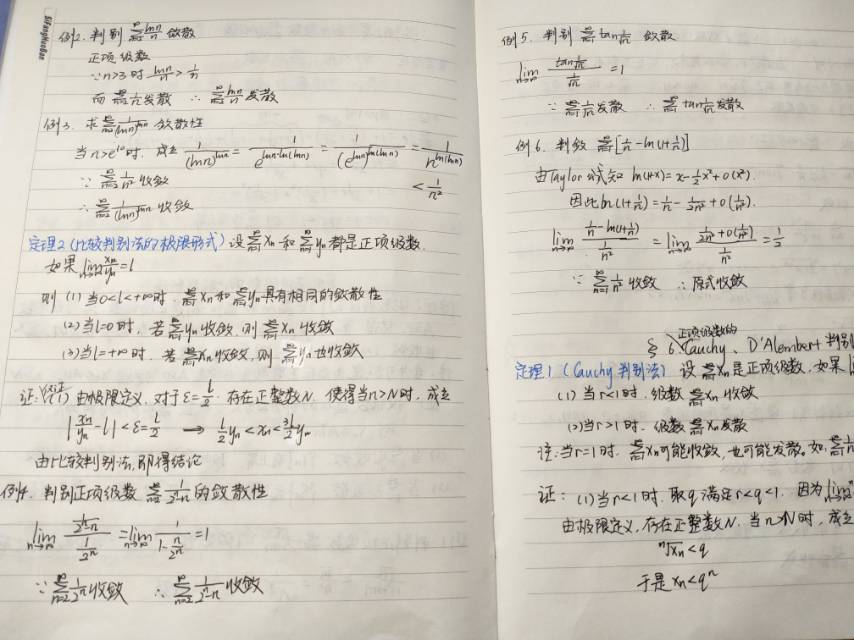 SiFangHuaBao
例2. 判别 ∑ ln n/n 敛散
正项级数
∵n>3时 ln n/n > 1/n
而 ∑ 1/n 发散 ∴ ∑ ln n/n 发散
例3. 求 ∑ 1/(ln n)^{ln n} 敛散性
当 n>e^{10}时, 成立 1/(ln n)^{ln n} = 1/e^{ln n·ln(ln n)} = 1/(e^{ln n})^{ln(ln n)} = 1/n^{ln(ln n)}
∵ ∑ 1/n² 收敛 < 1/n²
∴ ∑ 1/(ln n)^{ln n} 收敛
定理2 (比较判别法的极限形式) 设 ∑ xn 和 ∑ yn 都是正项级数.
如果 lim n→∞ xn/yn = l
则 (1) 当0<l<+∞时. ∑ xn 和 ∑ yn 具有相同的敛散性
(2) 当l=0时. 若 ∑ yn 收敛. 则 ∑ xn 收敛
(3) 当l=+∞时. 若 ∑ xn 收敛, 则 ∑ yn 也收敛
证: 仅证(1) 由极限定义. 对于 ε=l/2. 存在正整数N. 使得当n>N时, 成立
|xn/yn - l| < ε = l/2 → l/2 yn < xn < 3l/2 yn
由比较判别法, 即得结论
例4. 判别正项级数 ∑ 1/(2^n-n) 的敛散性
lim n→∞ (1/(2^n-n))/(1/2^n) = lim n→∞ 1/(1-n/2^n) = 1
∵ ∑ n=2 ∞ 1/2^n 收敛 ∴ ∑ n=2 ∞ 1/(2^n-n) 收敛
例5. 判别 ∑ tan 1/n 敛散
lim n→∞ (tan 1/n)/(1/n) = 1
∵ ∑ 1/n 发散 ∴ ∑ tan 1/n 发散
例6. 判敛 ∑ [1/n - ln(1+1/n)]
由Taylor公式知 ln(1+x) = x - ½x² + o(x²).
因此 ln(1+1/n) = 1/n - 1/2n² + o(1/n²).
lim n→∞ (1/n - ln(1+1/n))/(1/n²) = lim n→∞ (1/2n² + o(1/n²))/(1/n²) = 1/2
∵ ∑ n=1 ∞ 1/n² 收敛 ∴ 原式收敛
§ 6. 正项级数的 Cauchy、D'Alembert 判别
定理1 (Cauchy 判别法) 设 ∑ xn 是正项级数. 如果
(1) 当 r<1 时. 级数 ∑ xn 收敛
(2) 当 r>1 时. 级数 ∑ xn 发散
注: 当r=1时. ∑ xn 可能收敛, 也可能发散. 如:
证: (1) 当r<1时. 取q 满足 r<q<1. 因为 lim n→∞
由极限定义, 存在正整数N. 当 n>N时, 成立
ⁿ√xn < q
于是 xn < qⁿ